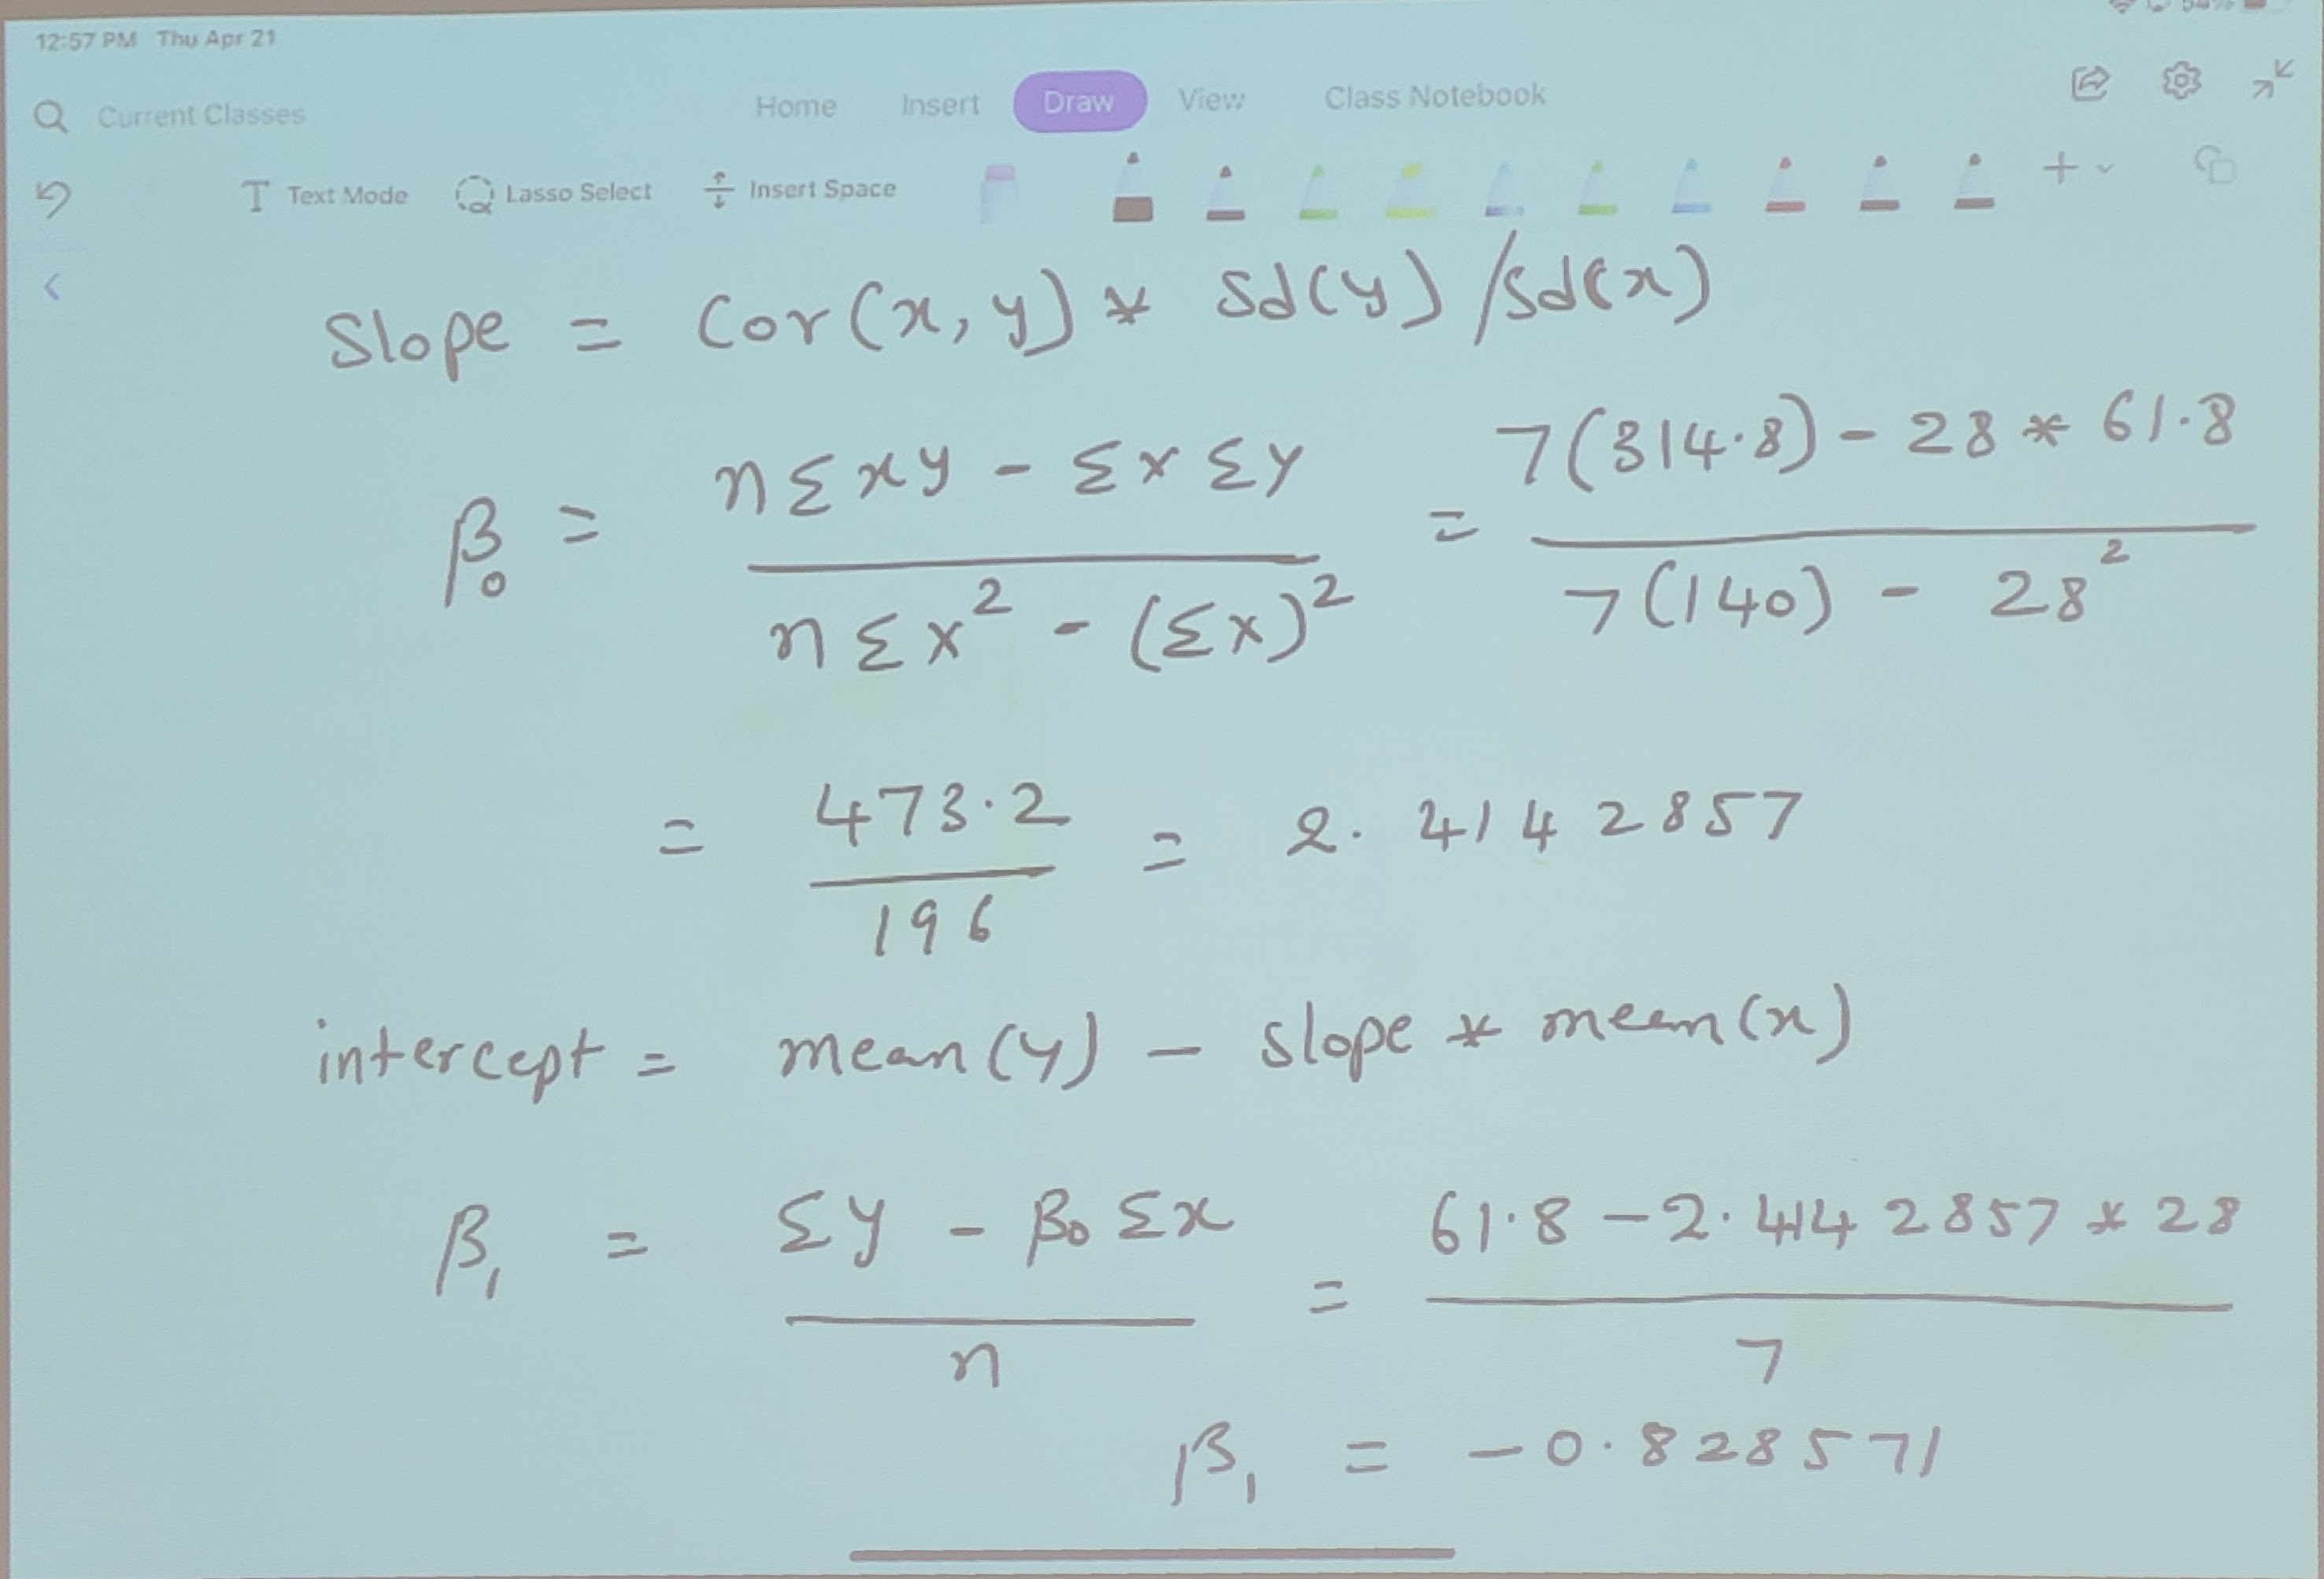 12:57 PM Thu Apr 21
Current Classes Home Insert Draw View Class Notebook
Text Mode Lasso Select Insert Space
Slope = Cor(x, y) * Sd(y) / Sd(x)
β₀ = (nΣxy - ΣxΣy) / (nΣx² - (Σx)²) = (7(314.8) - 28 * 61.8) / (7(140) - 28²)
= 473.2 / 196 = 2.4142857
intercept = mean(y) - slope * mean(x)
β₁ = (Σy - β₀Σx) / n = (61.8 - 2.4142857 * 28) / 7
β₁ = -0.828571